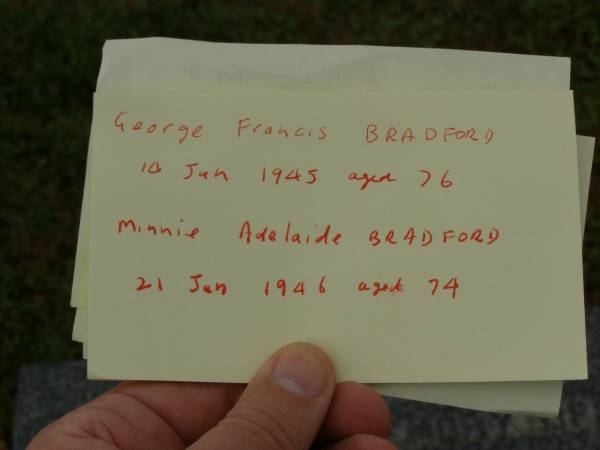 George Francis BRADFORD
14 Jan 1945 aged 76
Minnie Adelaide BRADFORD
21 Jan 1946 aged 74